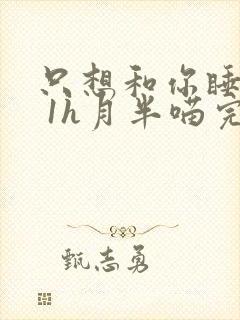 只想和你睡
1h月半喵完
甄志勇